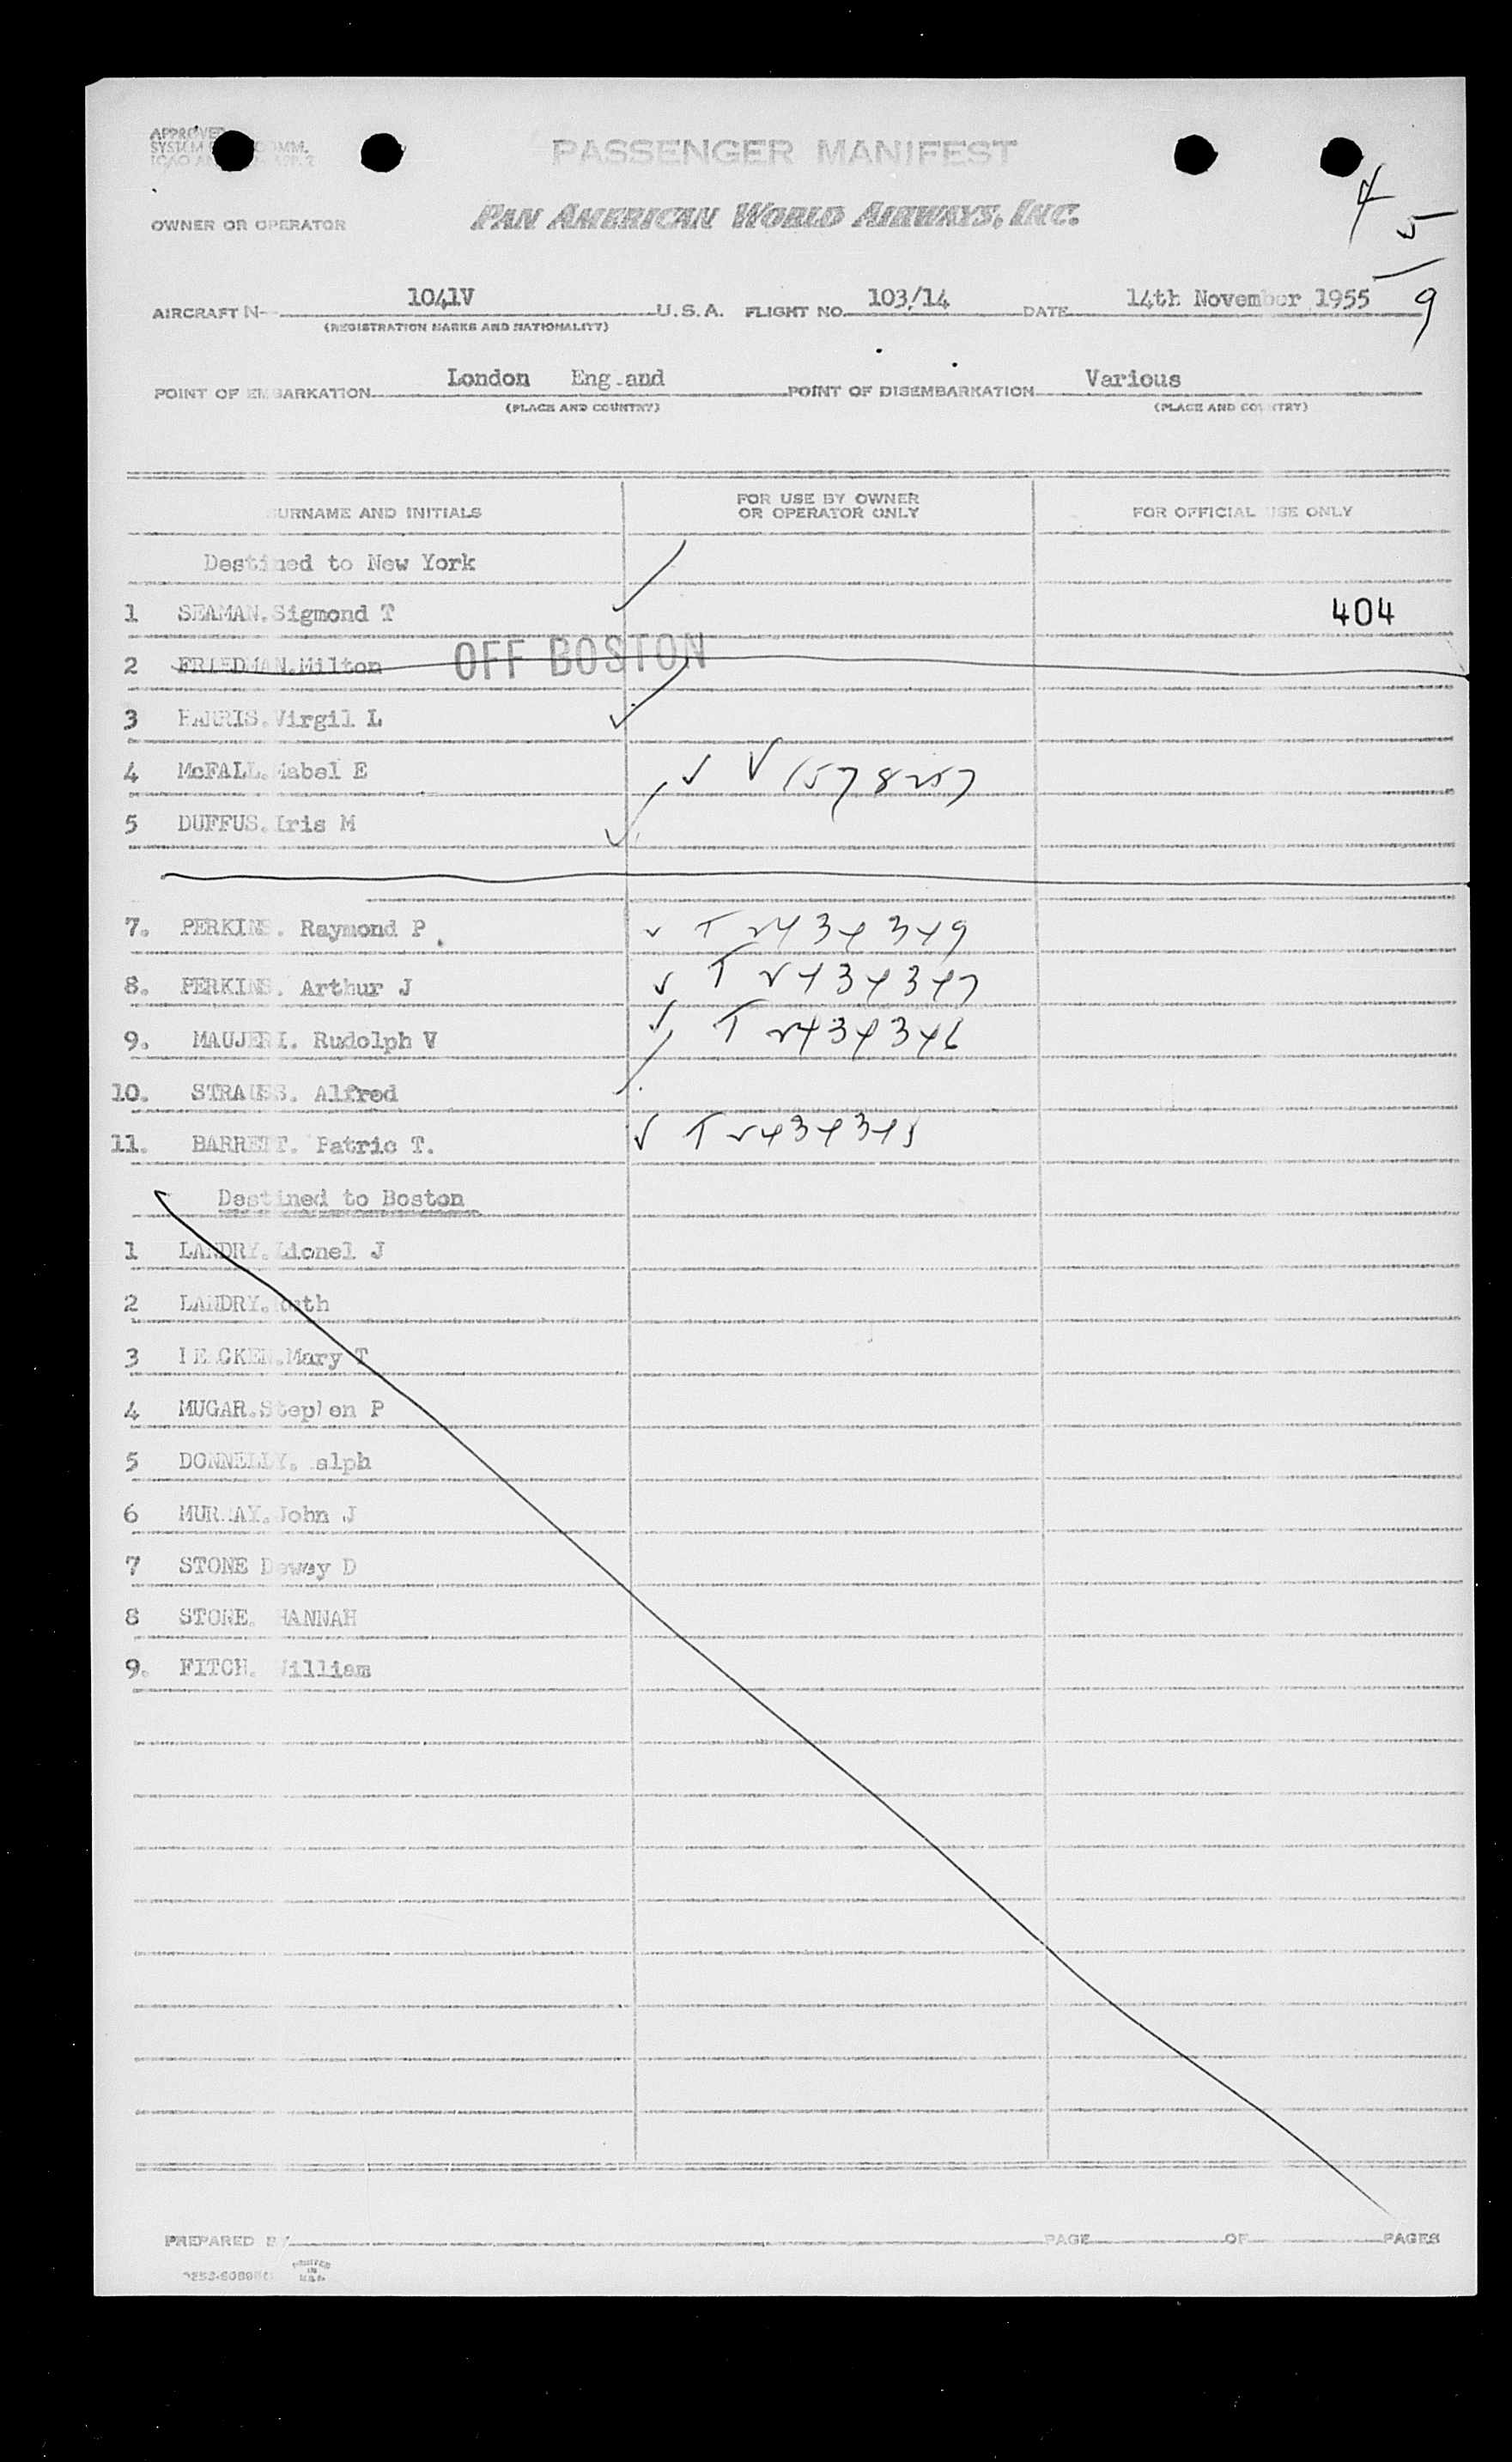 APPROVED
PASSENGER MANIFEST
OWNER OR OPERATOR PAN AMERICAN WORLD AIRWAYS, INC.
4
5
9
AIRCRAFT N- 1041V U.S.A. FLIGHT NO. 103/14 DATE 14th November 1955
(REGISTRATION MARKS AND NATIONALITY)
POINT OF EMBARKATION London Eng.and POINT OF DISEMBARKATION Various
(PLACE AND COUNTRY) (PLACE AND COUNTRY)
SURNAME AND INITIALS FOR USE BY OWNER OR OPERATOR ONLY FOR OFFICIAL USE ONLY
Destined to New York
1 SEAMAN.Sigmond T 404
2 FRIEDMAN.Milton OFF BOSTON
3 HARRIS.Virgil L
4 McFALL.Mabel E V 1578257
5 DUFFUS.Iris M
7. PERKINS. Raymond P T 2434349
8. PERKINS. Arthur J T 2434347
9. MAUJERI. Rudolph V T 2434346
10. STRAUSS. Alfred
11. BARRETT. Patric T. T 2434345
Destined to Boston
1 LANDRY.Lionel J
2 LANDRY.Ruth
3 Mary T
4 MUGAR.Stephen P
5 DONNELLY. alph
6 MURRAY.John J
7 STONE Dewey D
8 STONE. HANNAH
9. FITCH. William
PREPARED BY PAGE OF PAGES
PRINTED
IN
U.S.A.